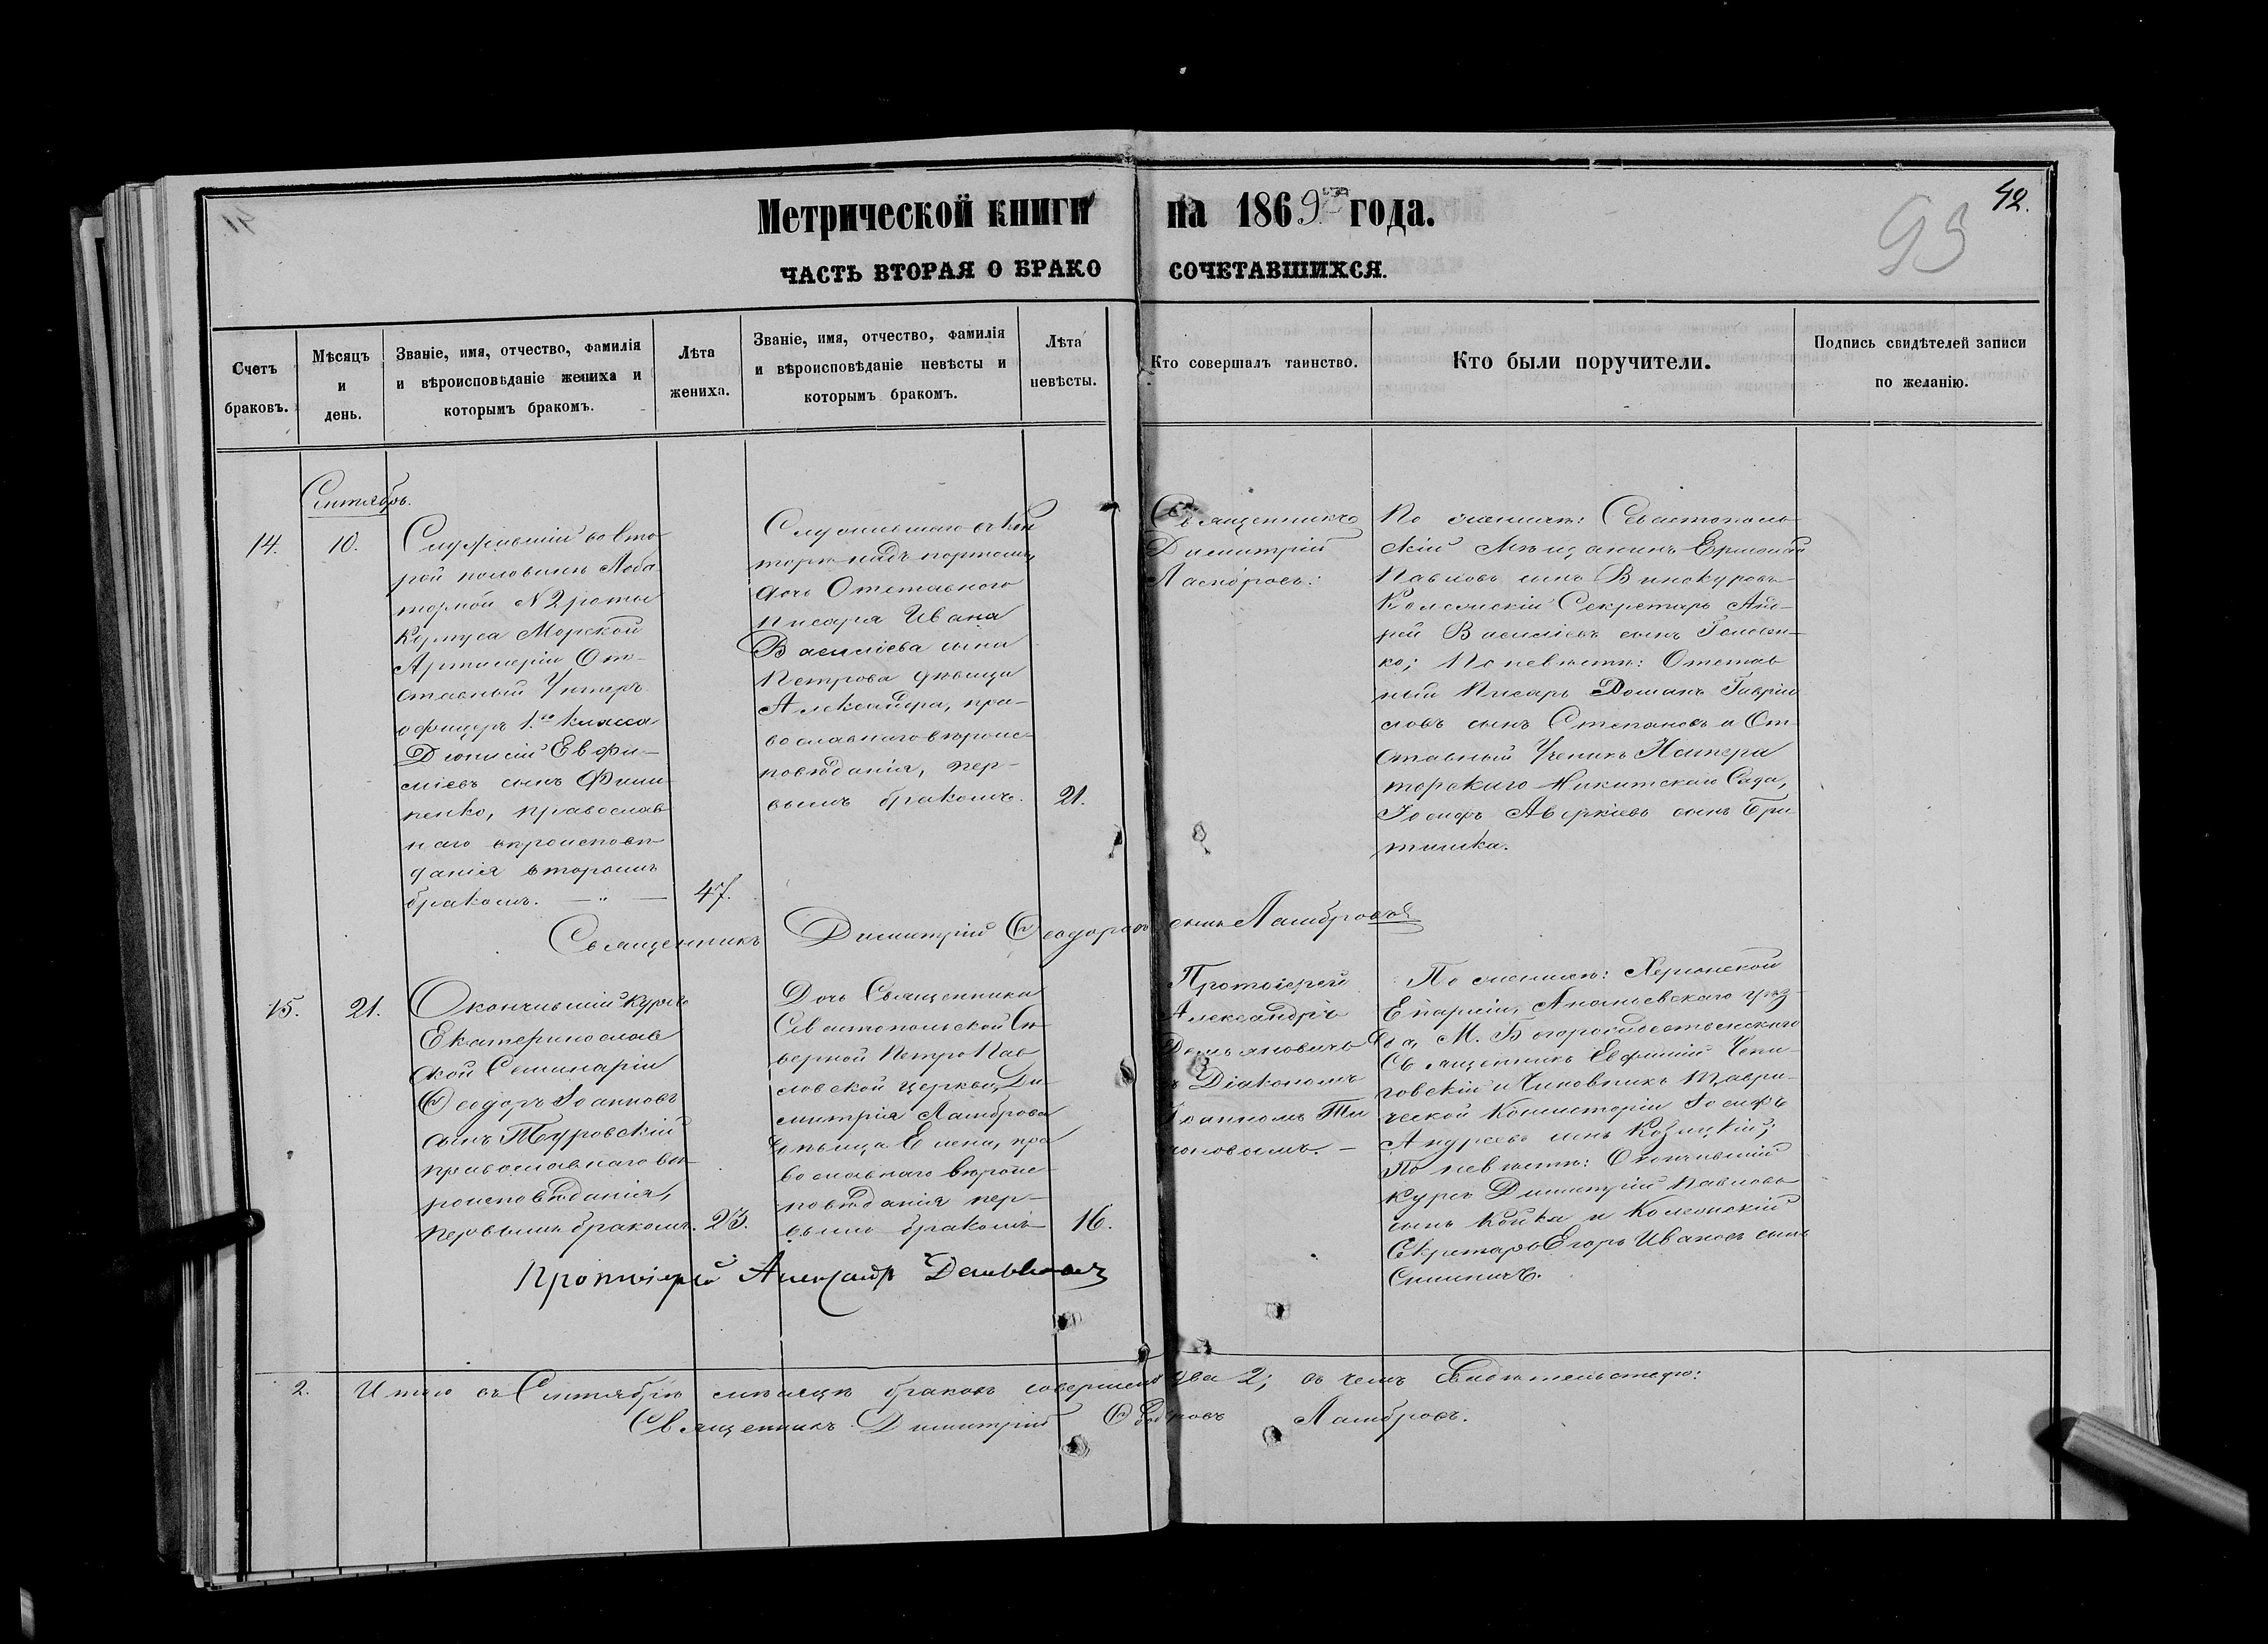 42.
93
Метрической книги на 1869 года.
ЧАСТЬ ВТОРАЯ О БРАКОСОЧЕТАВШИХСЯ.
Счетъ браковъ.
Мѣсяцъ и день.
Званіе, имя, отчество, фамилія и вѣроисповѣданіе жениха и которымъ бракомъ.
Лѣта жениха.
Званіе, имя, отчество, фамилія и вѣроисповѣданіе невѣсты и которымъ бракомъ.
Лѣта невѣсты.
Кто совершалъ таинство.
Кто были поручители.
Подпись свидѣтелей записи по желанію.
Сентябрь.
14.
10.
Служившій во вто-
рой половинѣ Лабо-
торной N 2 роты
Корпуса Морской
Артилеріи От-
ставный Унтеръ
офицеръ 1го класса
Діонисій Евфи-
міевъ сынъ Фили-
пенко, православ-
наго вѣроисповѣ-
данія вторымъ
бракомъ. — " —
47.
Служившаго въ Кон-
торѣ надъ портомъ,
дочь Отставного
писаря Ивана
Василіева сына
Петрова дѣвица
Александра, пра-
вославнаго вѣроис-
повѣданія, пер-
вымъ бракомъ.
21.
Священникъ
Димитрій
Ламбровъ.
По женихѣ: Севастополь-
скій Мѣщанинъ Ермолай
Павловъ сынъ Винокуровъ
Колежскій Секретарь Анд-
рей Василіевъ сынъ
ко; По невѣстѣ: Отстав-
ный Писарь Романъ Гаврі-
ловъ сынъ Степановъ и От-
ставный Ученикъ Импера-
торскаго Никитскаго Сада,
Іосифъ Аверкіевъ сынъ

Священникъ Димитрій Ѳеодоровъ сынъ Ламбровъ
15.
21.
Окончившій курсъ
Екатеринослав-
ской Семинаріи
Ѳеодоръ Іоанновъ
сынъ Туровскій
православнаго вѣ-
роисповѣданія,
первымъ бракомъ.
23.
Дочь Священника
Севастопольской Сѣ-
верной Петро Пав-
ловской церкви, Ди-
митрія Ламброва
дѣвица Елена, пра-
вославнаго вѣроис-
повѣданія пер-
вымъ бракомъ
16.
Протоіерей
Александръ
Демьяновичъ
съ Діакономъ
Іоанномъ Ти-
поновымъ. —
По женихѣ: Херсонской
Епархіи, Ананіевскаго уѣз-
да, М. Богорождественскаго
Священникъ Евфимій Черни-
говскій и Чиновникъ Таври-
ческой Консисторіи Іосифъ
Андреевъ сынъ Козицкій;
По невѣстѣ: Окончившій
курсъ Димитрій Павловъ
сынъ Койка и Колежскій
Секретарь Егоръ Ивановъ сынъ
Протоіерей Александръ Демьяновичъ
2. Итого въ Сентябрѣ мѣсяцѣ браковъ совершено два 2; въ чемъ свидѣтельствую:
Священникъ Димитрій Ѳеодоровъ Ламбровъ.